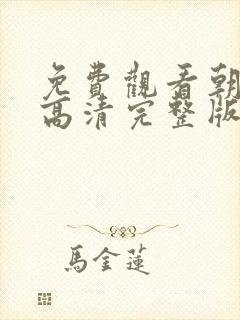 免費觀看朝
高清完整版
馬金蓮